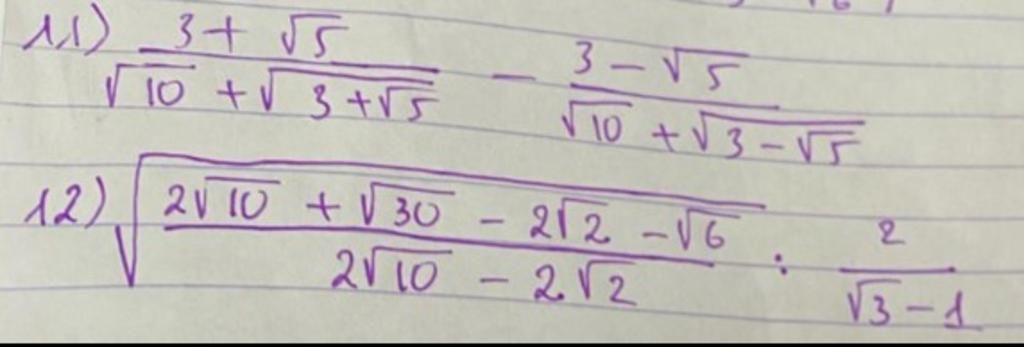 11) \frac{3 + \sqrt{5}}{\sqrt{10} + \sqrt{3 + \sqrt{5}}} - \frac{3 - \sqrt{5}}{\sqrt{10} + \sqrt{3 - \sqrt{5}}}
12) \sqrt{\frac{2\sqrt{10} + \sqrt{30} - 2\sqrt{2} - \sqrt{6}}{2\sqrt{10} - 2\sqrt{2}}} : \frac{2}{\sqrt{3} - 1}